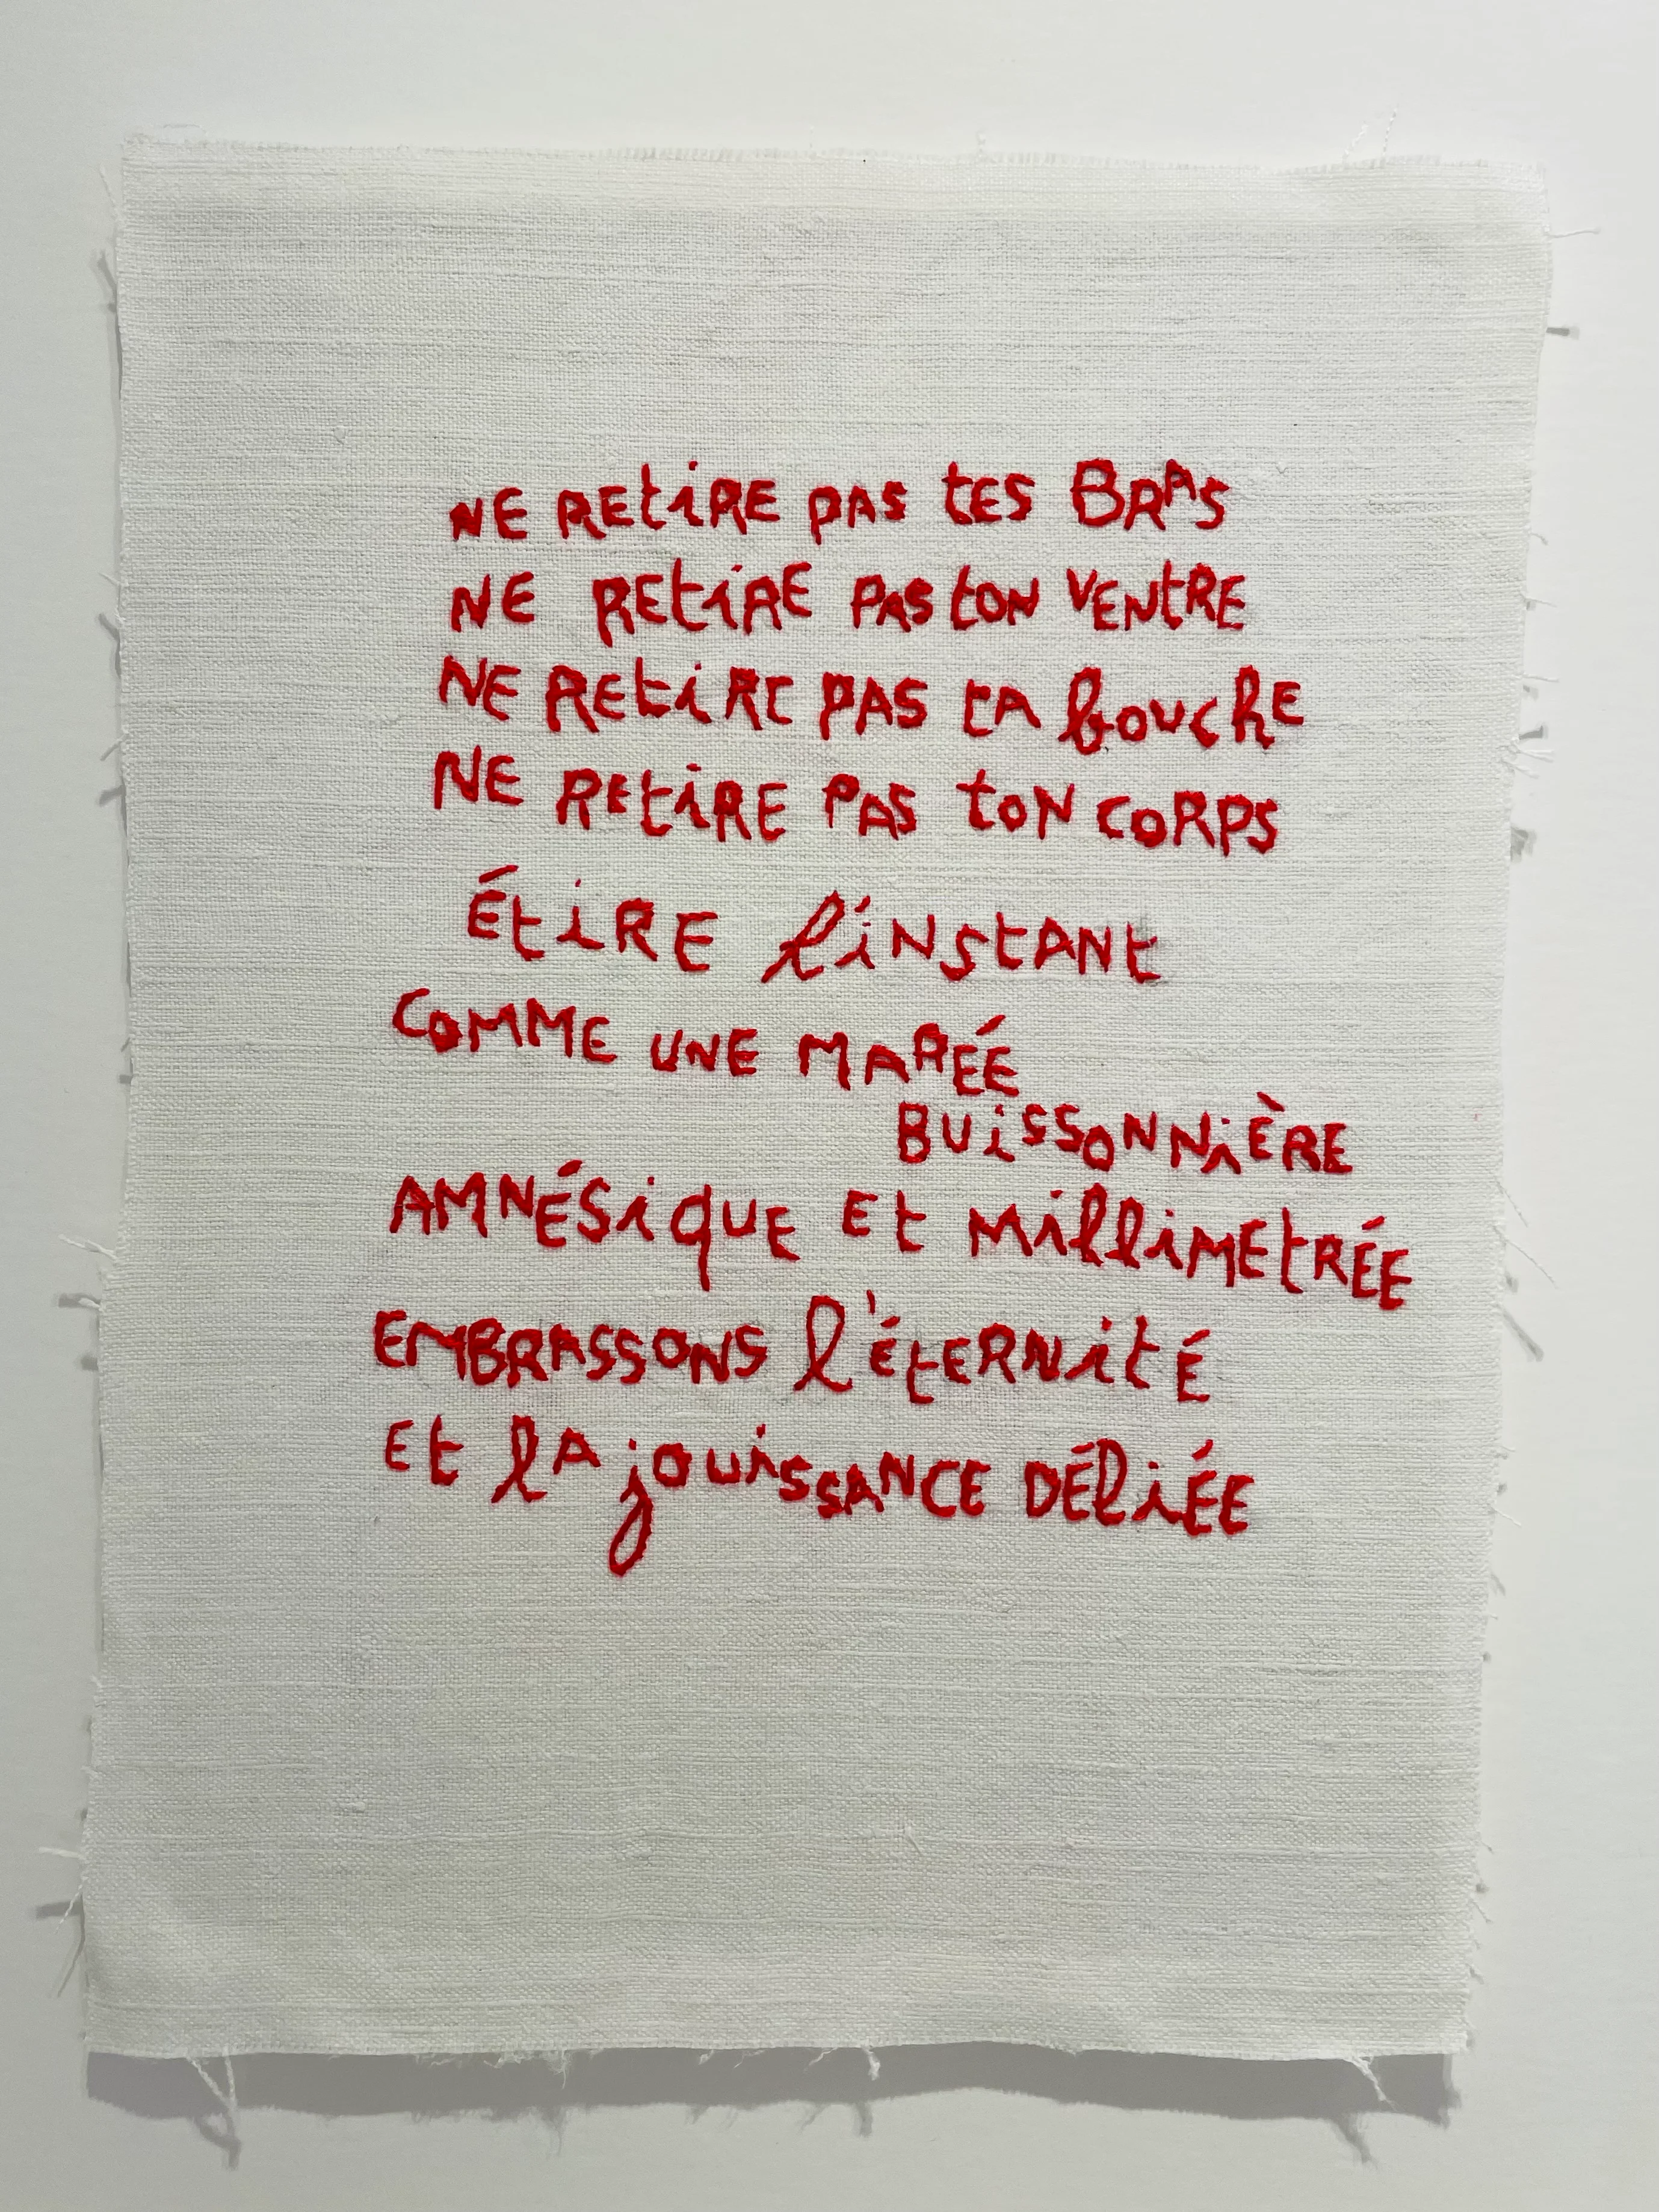 NE REtiRE PAS tES BRAS
NE REtiRE PAS tON VENtRE
NE REtiRE PAS tA bouchE
NE REtiRE PAS toN CORPS
ÉtiRE l'iNStANt
COMME UNE MARÉE
BUiSSONNiÈRE
AMNÉSiqUE Et MilliMEtRÉE
EMBRASSONS l'ÉtERNitÉ
Et lA jouiSSANCE DÉliÉE